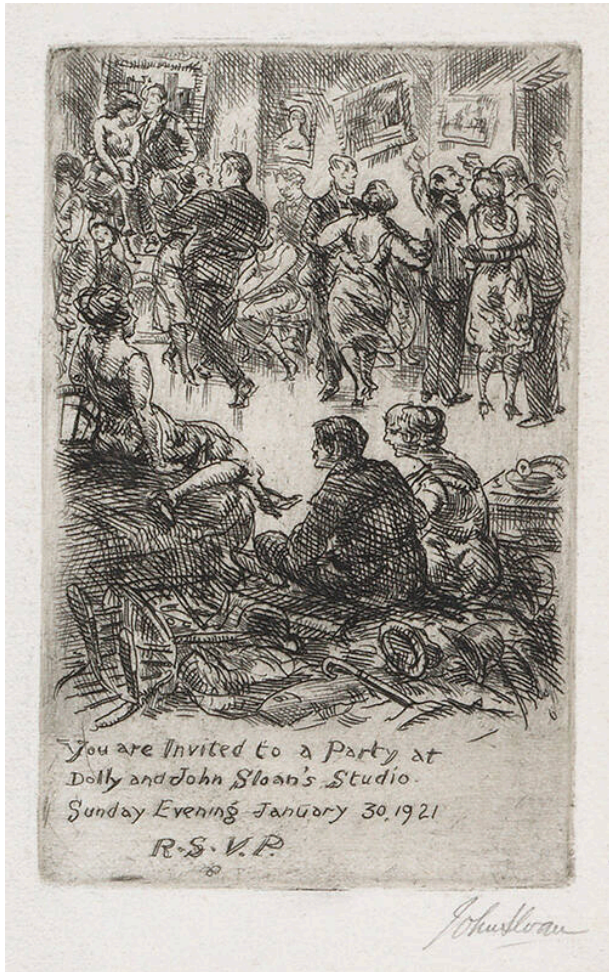 You are Invited to a Party at
Dolly and John Sloan's Studio.
Sunday Evening January 30, 1921
R.S.V.P.
John Sloan